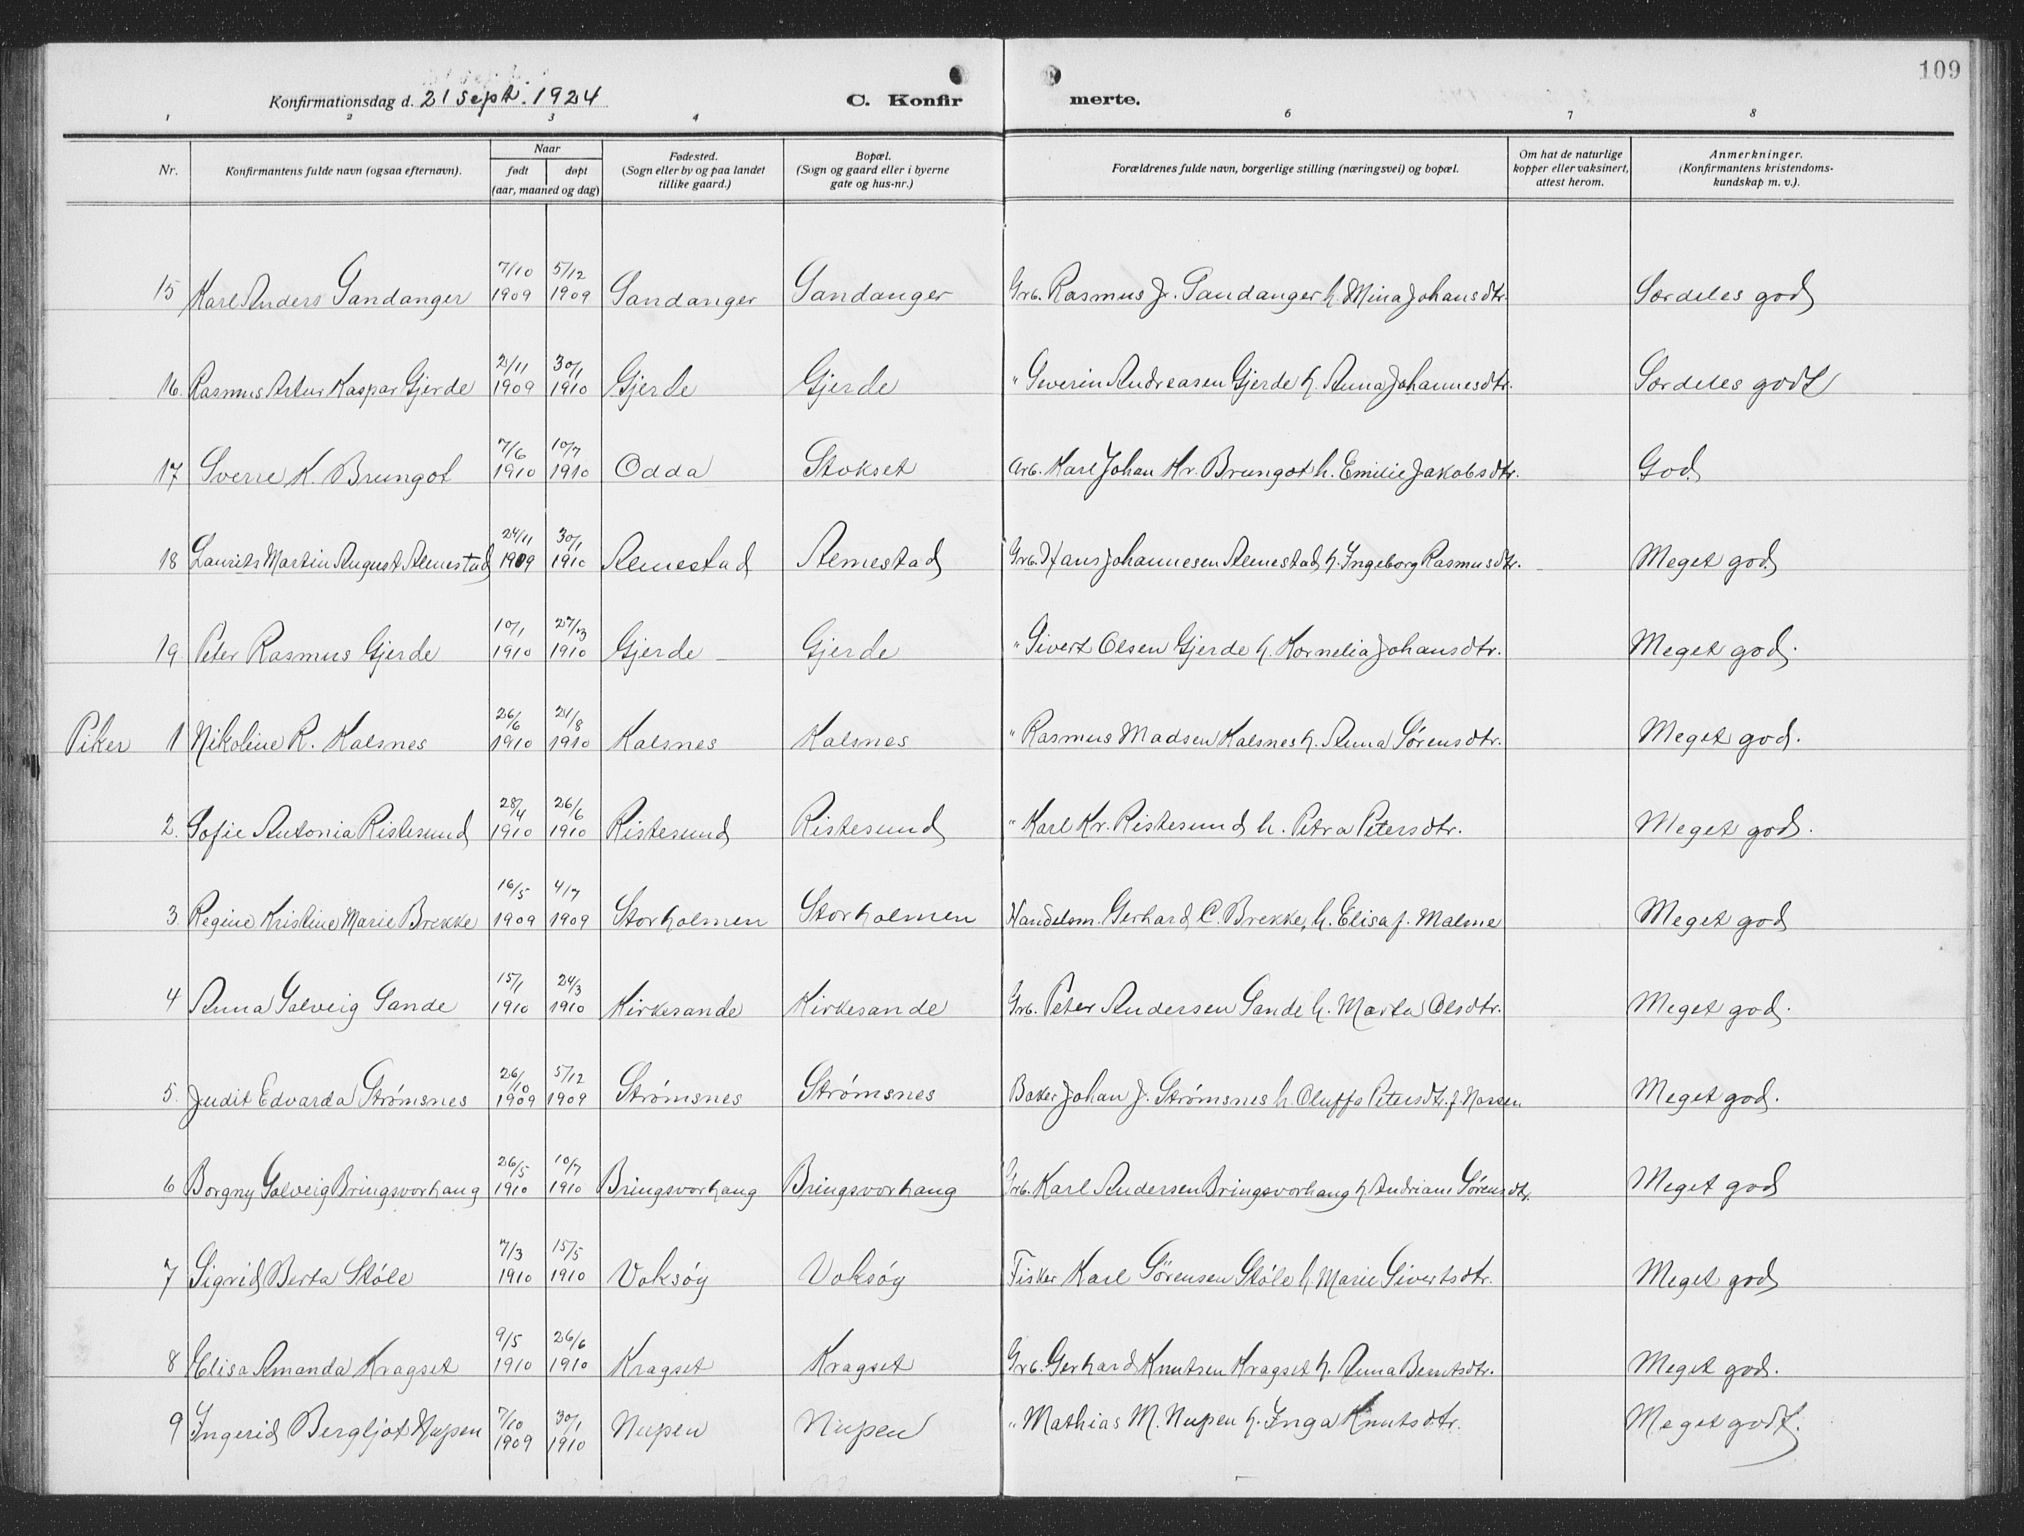 109
Konfirmationsdag d. 21 Sept. 1924 C. Konfir merte.
1 2 3 4 5 6 7 8
Nr. Konfirmantens fulde navn (ogsaa efternavn). Naar født døpt (aar, maaned og dag) Fødested. (Sogn eller by og paa landet tillike gaard.) Bopæl. (Sogn og gaard eller i byerne gate og hus-nr.) Forældrenes fulde navn, borgerlige stilling (næringsvei) og bopæl. Om hat de naturlige kopper eller vaksinert, attest herom. Anmerkninger. (Konfirmantens kristendomskundskap m. v.).
15 Karl Anders Sandanger 7/10 1909 5/12 1909 Sandanger Sandanger Grb. Rasmus J. Sandanger h. Mina Johansdtr. Særdeles god
16. Rasmus Artur Kaspar Gjerde 21/11 1909 30/1 1910 Gjerde Gjerde " Severin Andreasen Gjerde h. Anna Johannesdtr. Særdeles godt
17 Sverre K. Brungot 7/6 1910 10/7 1910 Odda Stokset Arb. Karl Johan Kr. Brungot h. Emilie Jakobsdtr. God.
18 Laurits Martin August Almestad 24/11 1909 30/1 1910 Almestad Almestad Grb. Hans Johannesen Almestad h. Ingeborg Rasmusdtr. Meget god.
19 Peter Rasmus Gjerde 10/1 1910 27/3 1910 Gjerde Gjerde " Sivert Olsen Gjerde h. Kornelia Johansdtr. Meget god.
Piker 1 Nikoline R. Kalsnes 26/6 1910 21/8 1910 Kalsnes Kalsnes " Rasmus Madsen Kalsnes h. Anna Sørensdtr. Meget god.
2. Sofie Antonia Ristesund 28/4 1910 26/6 1910 Ristesund Ristesund " Karl Kr. Ristesund h. Petra Petersdtr. Meget god.
3. Regine Kristine Marie Brekke 16/5 1909 4/7 1909 Storholmen Storholmen Handelsm. Gerhard C. Brekke, h. Elisa f. Malme Meget god
4 Anna Solveig Sande 15/1 1910 24/3 1910 Kirkesande Kirkesande Grb. Peter Andersen Sande h. Marta Olsdtr. Meget god.
5. Judit Edvarda Strømsnes 26/10 1909 5/12 1909 Strømsnes Strømsnes Baker Johan J. Strømsnes h. Oluffa Petersdtr. f. Meget god.
6 Borgny Solveig Bringsvorhaug 26/5 1910 10/7 1910 Bringsvorhaug Bringsvorhaug Grb. Karl Andersen Bringsvorhaug h. Andriane Sørensdtr. Meget god
7 Sigrid Berta Støle 7/3 1910 15/5 1910 Voksøy Voksøy Fisker Karl Sørensen Støle h. Marie Sivertsdtr. Meget god
8 Elisa Amanda Kragset 9/5 1910 26/6 1910 Kragset Kragset Grb. Gerhard Knutsen Kragset h. Anna Berntsdtr. Meget god.
9 Ingerid Bergljot Nupen 7/10 1909 30/1 1910 Nupen Nupen " Mathias M. Nupen h. Inga Knutsdtr. Meget godt.